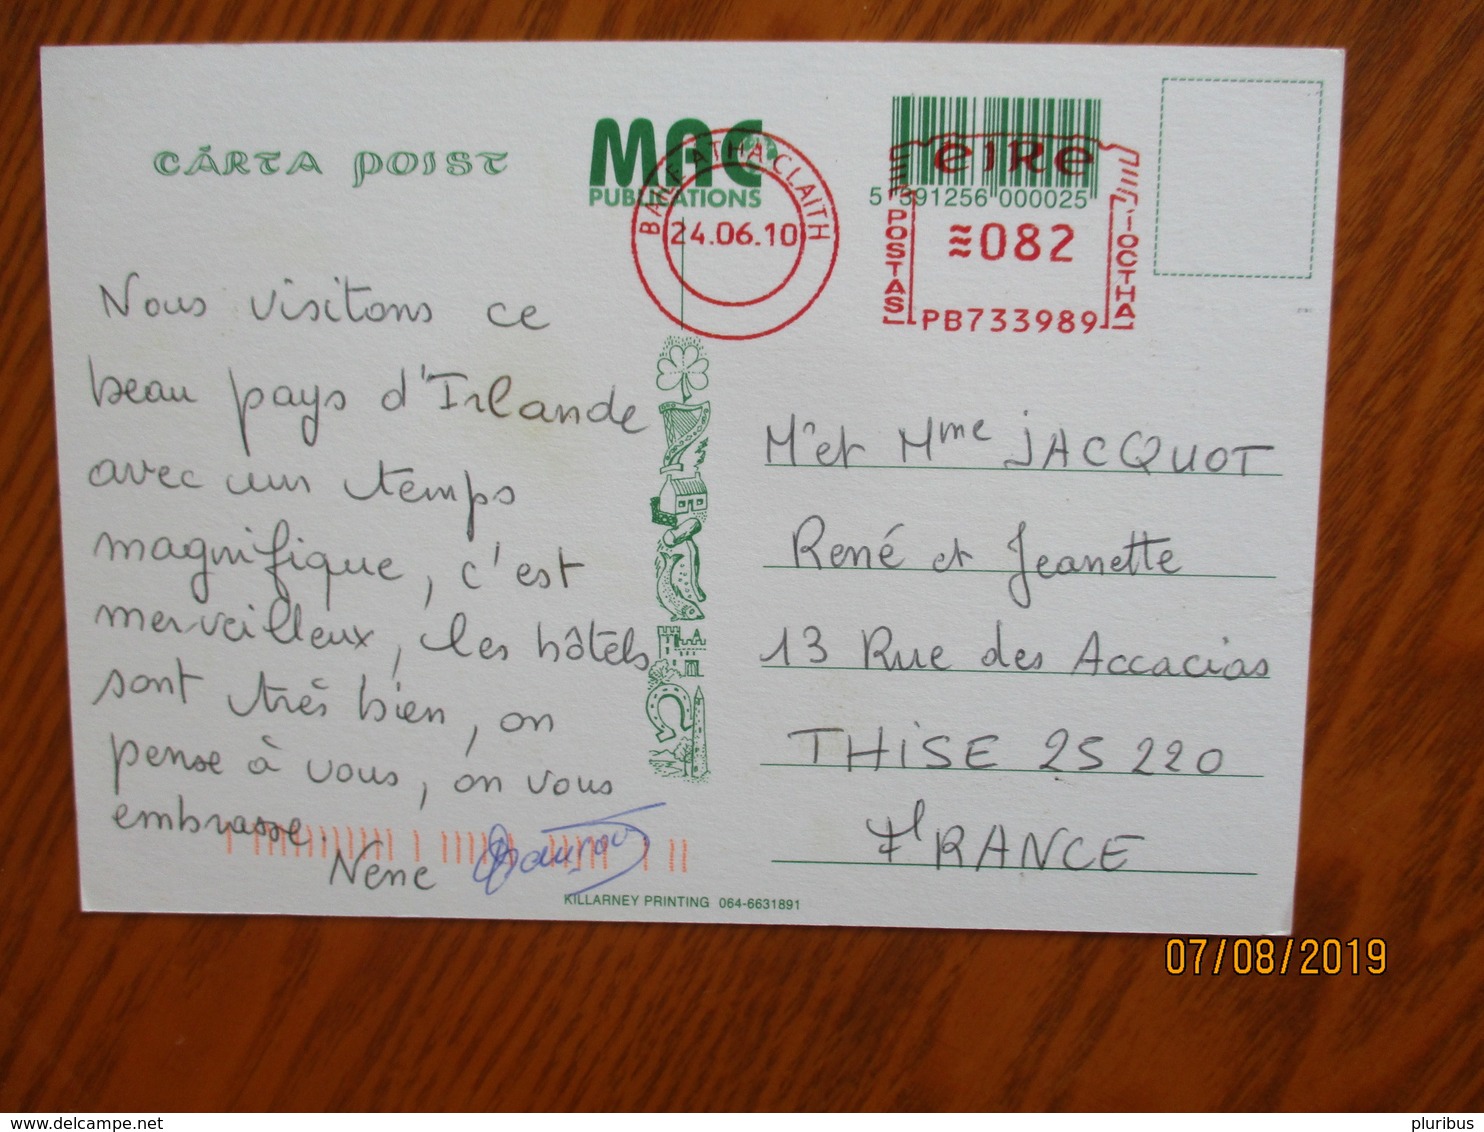 CÁRTA POIST
MAC
PUBLICATIONS
BAILE ÁTHA CLIATH
24.06.10
5 391256 000025
éire
≈082
POSTAS
IOCTHA
PB733989
Nous visitons ce
beau pays d'Irlande
avec un temps
magnifique, c'est
merveilleux, les hôtels
sont très bien, on
pense à vous, on vous
embrasse.
Nène
M^r et M^me JACQUOT
René et Jeanette
13 Rue des Accacias
THiSE 25 220
FRANCE
KILLARNEY PRINTING 064-6631891
07/08/2019
www.delcampe.net
pluribus